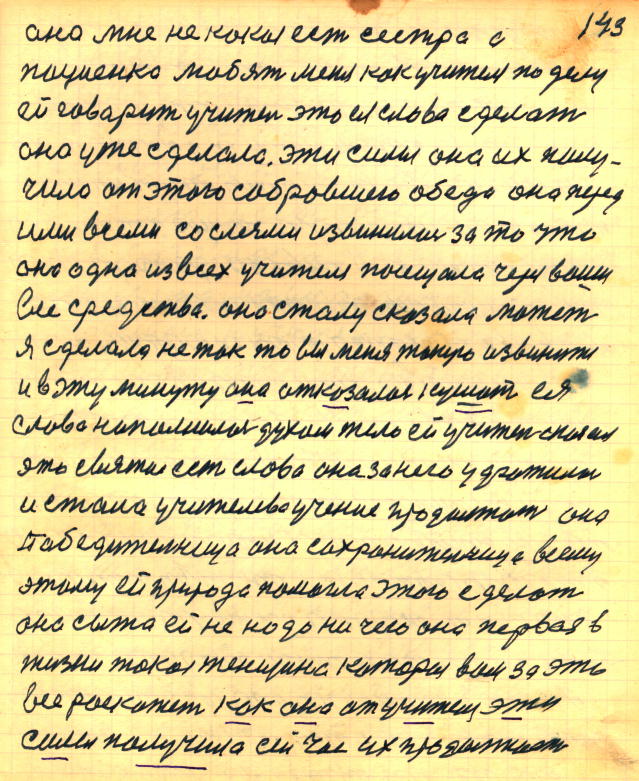 143
она мне не какая ест сестра а
пациенка любят меня как учителя по делу
ей говарит учител это ея слова сделат
она уже сделала. эти силы она их полу-
чила от этого собровшего обеда она перед
ими всеми со слезами извинилас за то что
она одна из всех учителя
все средства. она сталу сказала может
я сделала не так то вы меня такую извините
и в эту минуту она отказалас кушат ея
слова наполнилас духом тело ей учител сказал
это святые ест слова она за него удражила
и стала учителева учение продолжат она
победителница она сохранителница всему
этому ей природа помогла этого сделат
она сыта ей не надо ни чего она первая в
жизни такая женщина которая вам за это
все роскажет как она от учителя эти
силы получила сей час их продолжает